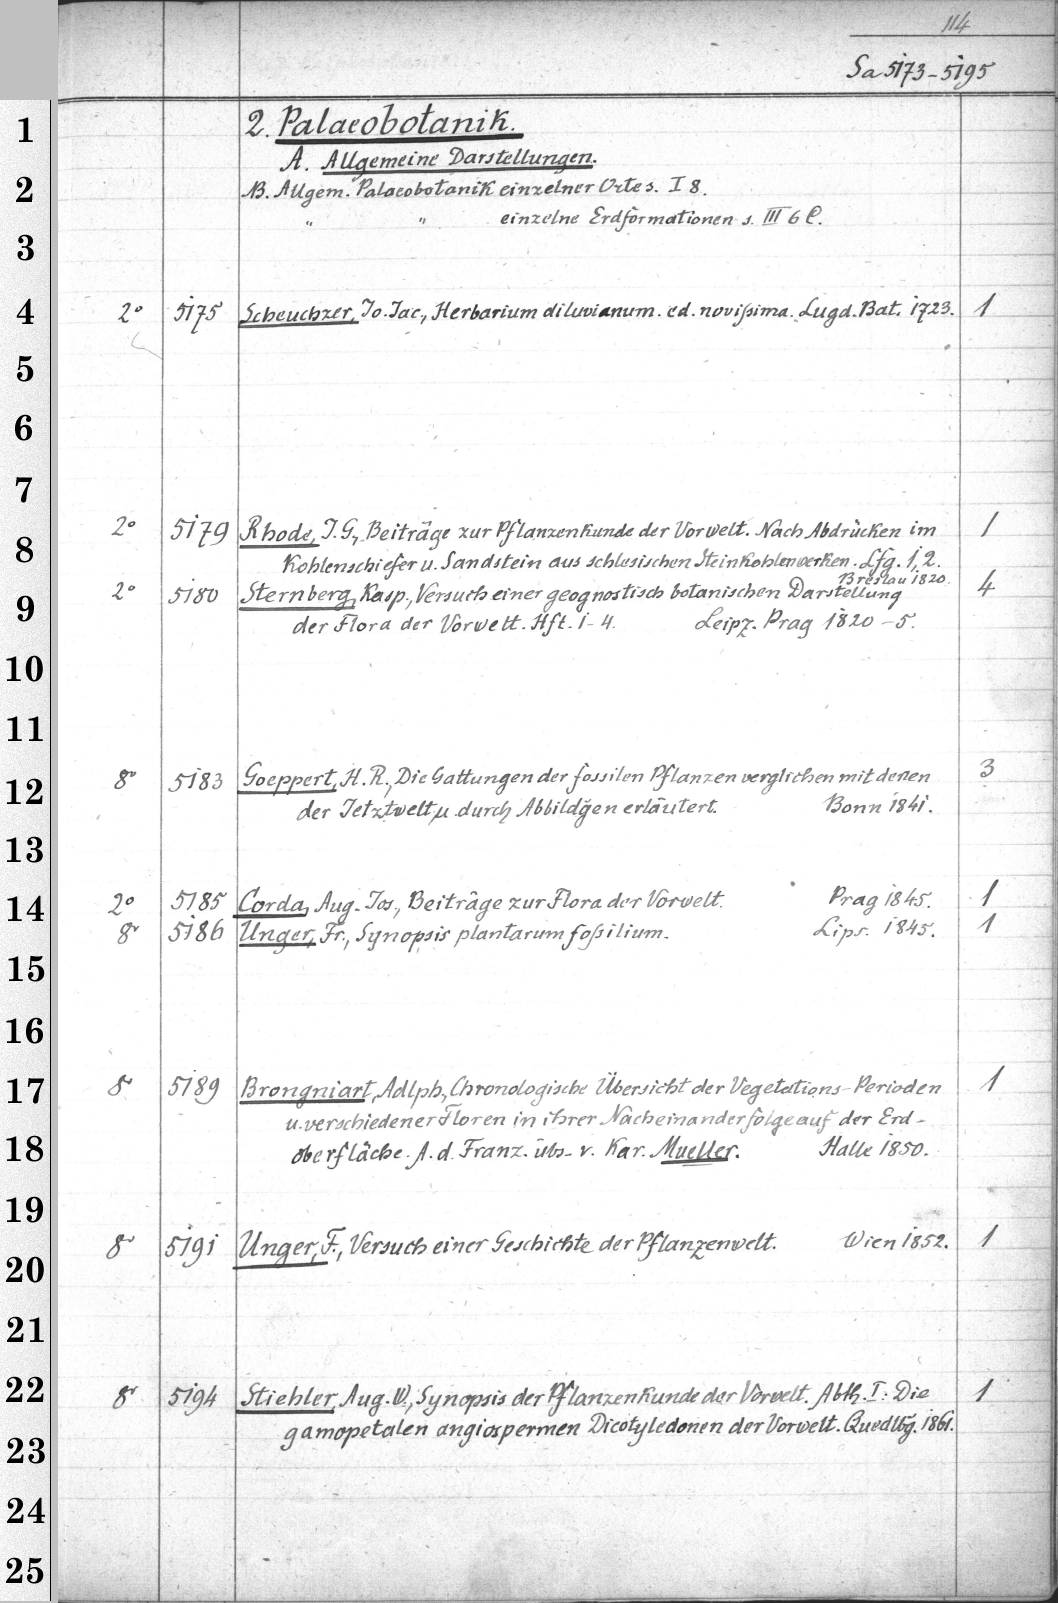 114
Sa 5173-5195
1
2. Palaeobotanik.
A. Allgemeine Darstellungen.
2
NB. Allgem. Palaeobotanik einzelner Orte s. I 8.
" " einzelne Erdformationen s. III 6 C.
3
4 2° 5175 Scheuchzer, Jo. Jac., Herbarium diluvianum. ed. novißima. Lugd. Bat. 1723. 1
5
6
7
2° 5179 Rhode, J. G., Beiträge zur Pflanzenkunde der Vorwelt. Nach Abdrücken im 1
8
Kohlenschiefer u. Sandstein aus schlesischen Steinkohlenwerken. Lfg. 1, 2.
Breslau 1820.
2° 5180 Sternberg, Kasp., Versuch einer geognostisch botanischen Darstellung 4
9
der Flora der Vorwelt. Hft. 1-4. Leipz. Prag 1820-5.
10
11
8° 5183 Goeppert, H. R., Die Gattungen der fossilen Pflanzen verglichen mit denen 3
12
der Jetztwelt u. durch Abbildg̃en erläutert. Bonn 1841.
13
14 2° 5185 Corda, Aug. Jos., Beiträge zur Flora der Vorwelt. Prag 1845. 1
8° 5186 Unger, Fr., Synopsis plantarum foßilium. Lips. 1845. 1
15
16
17 8° 5189 Brongniart, Adlph., Chronologische Übersicht der Vegetations-Perioden 1
u. verschiedener Floren in ihrer Nacheinanderfolge auf der Erd-
18 oberfläche. A. d. Franz. übs. v. Kar. Mueller. Halle 1850.
19
8° 5191 Unger, F., Versuch einer Geschichte der Pflanzenwelt. Wien 1852. 1
20
21
22 8° 5194 Stiehler, Aug. W., Synopsis der Pflanzenkunde der Vorwelt. Abth. I: Die 1
gamopetalen angiospermen Dicotyledonen der Vorwelt. Quedlbg. 1861.
23
24
25